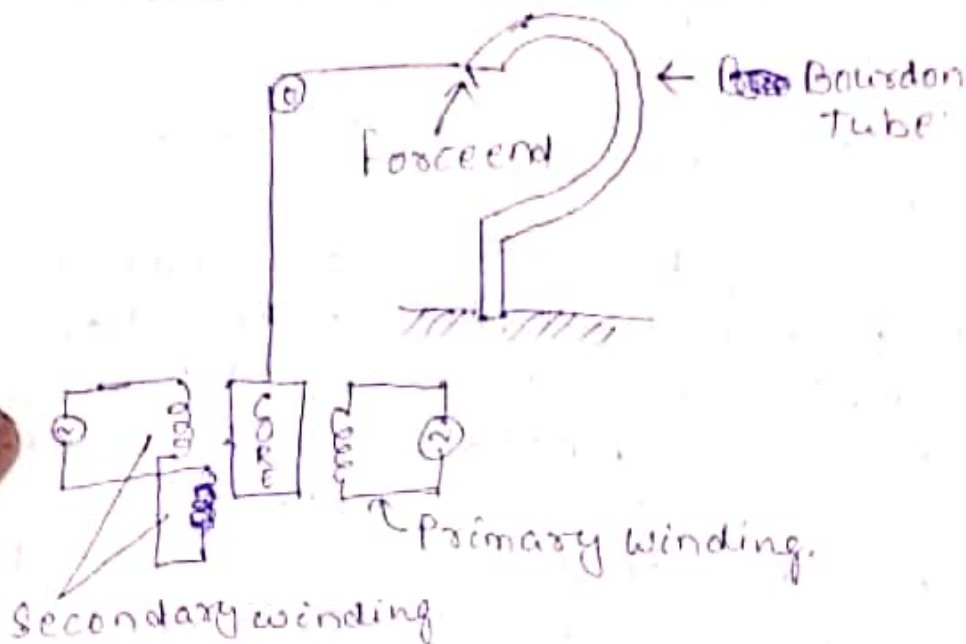 ← Bourdon
Tube
Force end
CORE
Primary winding.
Secondary winding